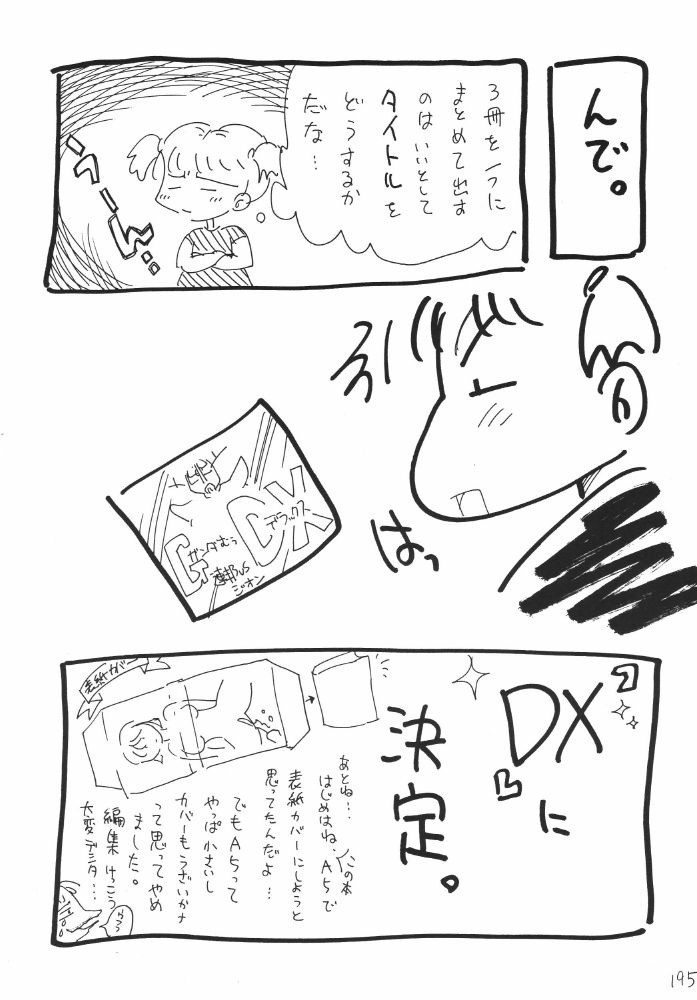 んで。
3冊を1つに
まとめて出す
のはいいとして
タイトルを
どうするか
だな…
うーん…
はっ
ガンダむぅ
デラックス
G
DX
連邦VS
ジオン
『DX』に
決定。
表紙カバー
あとね…
はじめはね、この本A5で
表紙カバーにしようと
思ってたんだよ…
でもA5って
やっぱ小さいし
カバーもうざいかナ
って思ってやめ
ました。
編集けっこう
大変デシタ…
195